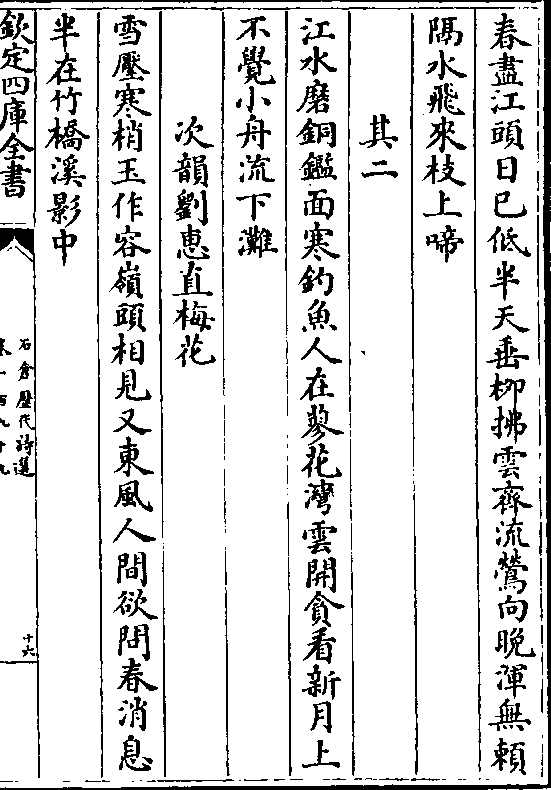 春盡江頭日已低半天垂柳拂雲齊流鶯向晚渾無賴
隔水飛來枝上啼
其二
江水磨銅鑑面寒釣魚人在蓼花灣雲開貪看新月上
不覺小舟流下灘
次韻劉惠直梅花
雪壓寒梢玉作容嶺頭相見又東風人間欲問春消息
半在竹橋溪影中
欽定四庫全書
石倉歷代詩選
十六